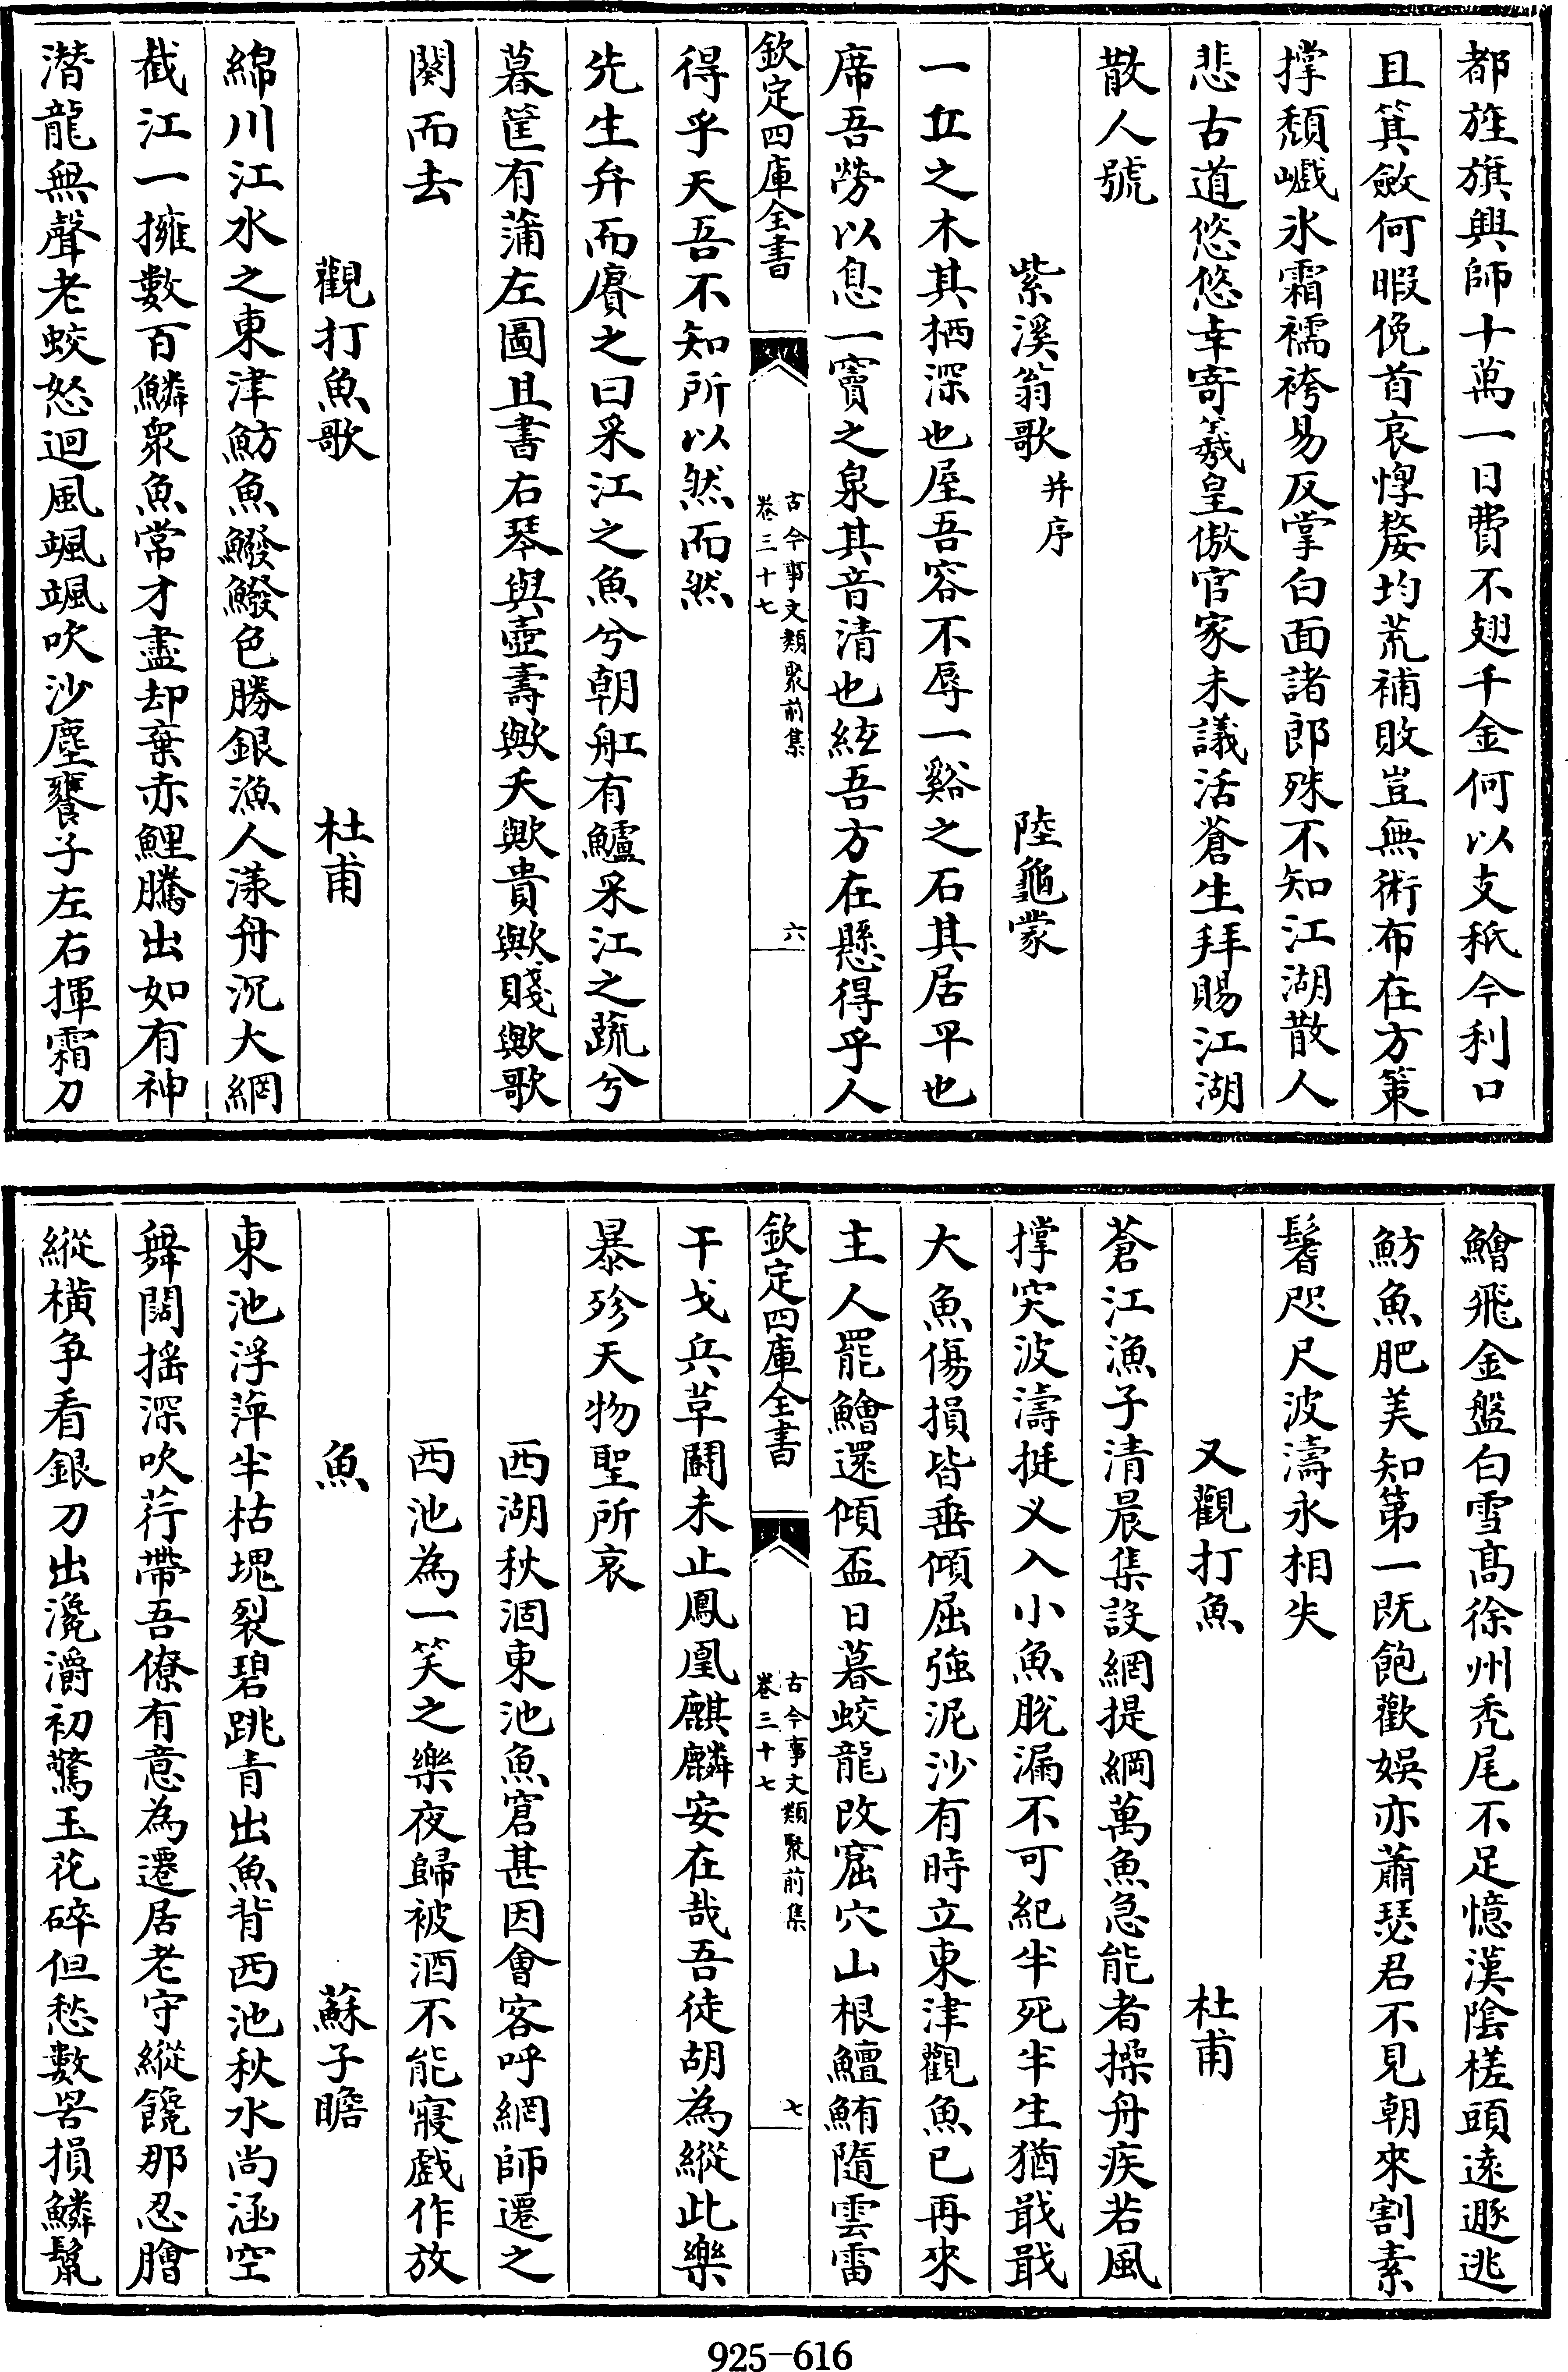 都旌旗興師十萬一日費不翅千金何以支秖今利口
且箕斂何暇俛首哀惸嫠均荒補敗豈無術布在方策
撑頽巇氷霜襦袴易反掌白面諸郎殊不知江湖散人
悲古道悠悠幸寄羲皇傲官家未議活蒼生拜賜江湖
散人號
紫溪翁歌并序　陸龜蒙
一丘之木其栖深也屋吾容不辱一谿之石其居平也
席吾勞以息一竇之泉其音清也絃吾方在懸得乎人
欽定四庫全書　古今事文類聚前集卷三十七　六
得乎天吾不知所以然而然
先生弁而賡之曰采江之魚兮朝舡有鱸采江之蔬兮
暮筐有蒲左圖且書右琴與壺壽歟夭歟貴歟賤歟歌
闋而去
觀打魚歌　杜甫
綿川江水之東津魴魚鱍鱍色勝銀漁人漾舟沉大網
截江一擁數百鱗衆魚常才盡却棄赤鯉騰出如有神
潛龍無聲老蛟怒迴風颯颯吹沙塵饔子左右揮霜刀
鱠飛金盤白雪高徐州秃尾不足憶漢陰槎頭遠遯逃
魴魚肥美知第一既飽歡娛亦蕭瑟君不見朝來割素
鬐咫尺波濤永相失
又觀打魚　杜甫
蒼江漁子清晨集設網提綱萬魚急能者操舟疾若風
撑突波濤挺义入小魚脫漏不可紀半死半生猶戢戢
大魚傷損皆垂傾屈強泥沙有時立東津觀魚已再來
主人罷鱠還傾盃日暮蛟龍改窟穴山根鱣鮪隨雲雷
欽定四庫全書　古今事文類聚前集卷三十七　七
干戈兵草鬭未止鳳凰麒麟安在哉吾徒胡為縱此樂
暴殄天物聖所哀
西湖秋涸東池魚窘甚因會客呼網師遷之
西池為一笑之樂夜歸被酒不能寢戲作放
魚　蘇子瞻
東池浮萍半枯塊裂碧跳青出魚背西池秋水尚涵空
舞闊摇深吹荇帶吾僚有意為遷居老守縱饞那忍膾
縱横争看銀刀出瀺灂初驚玉花碎但愁數罟損鱗鬣
925-616